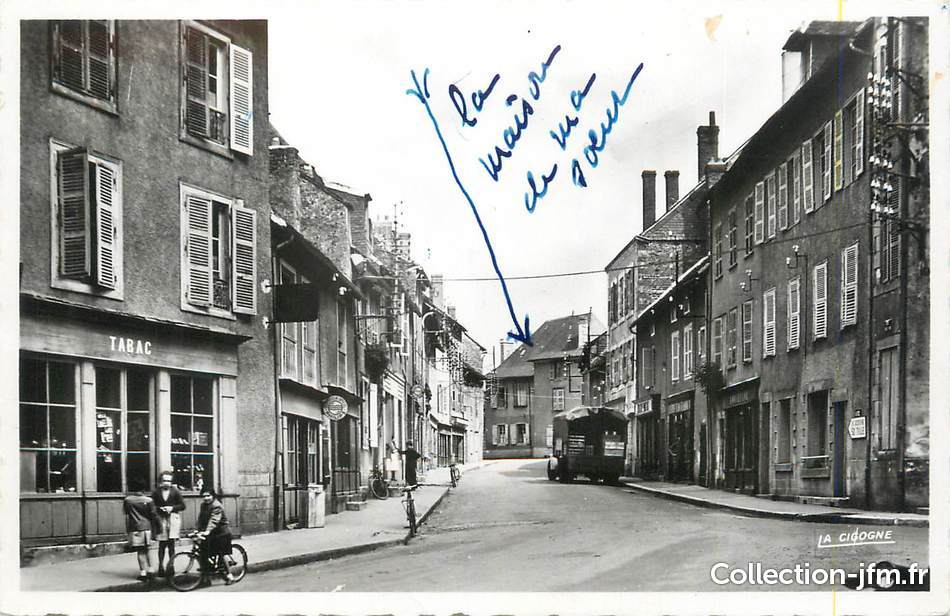 la
maison
de ma
soeur
TABAC
LA CIGOGNE
Collection-jfm.fr